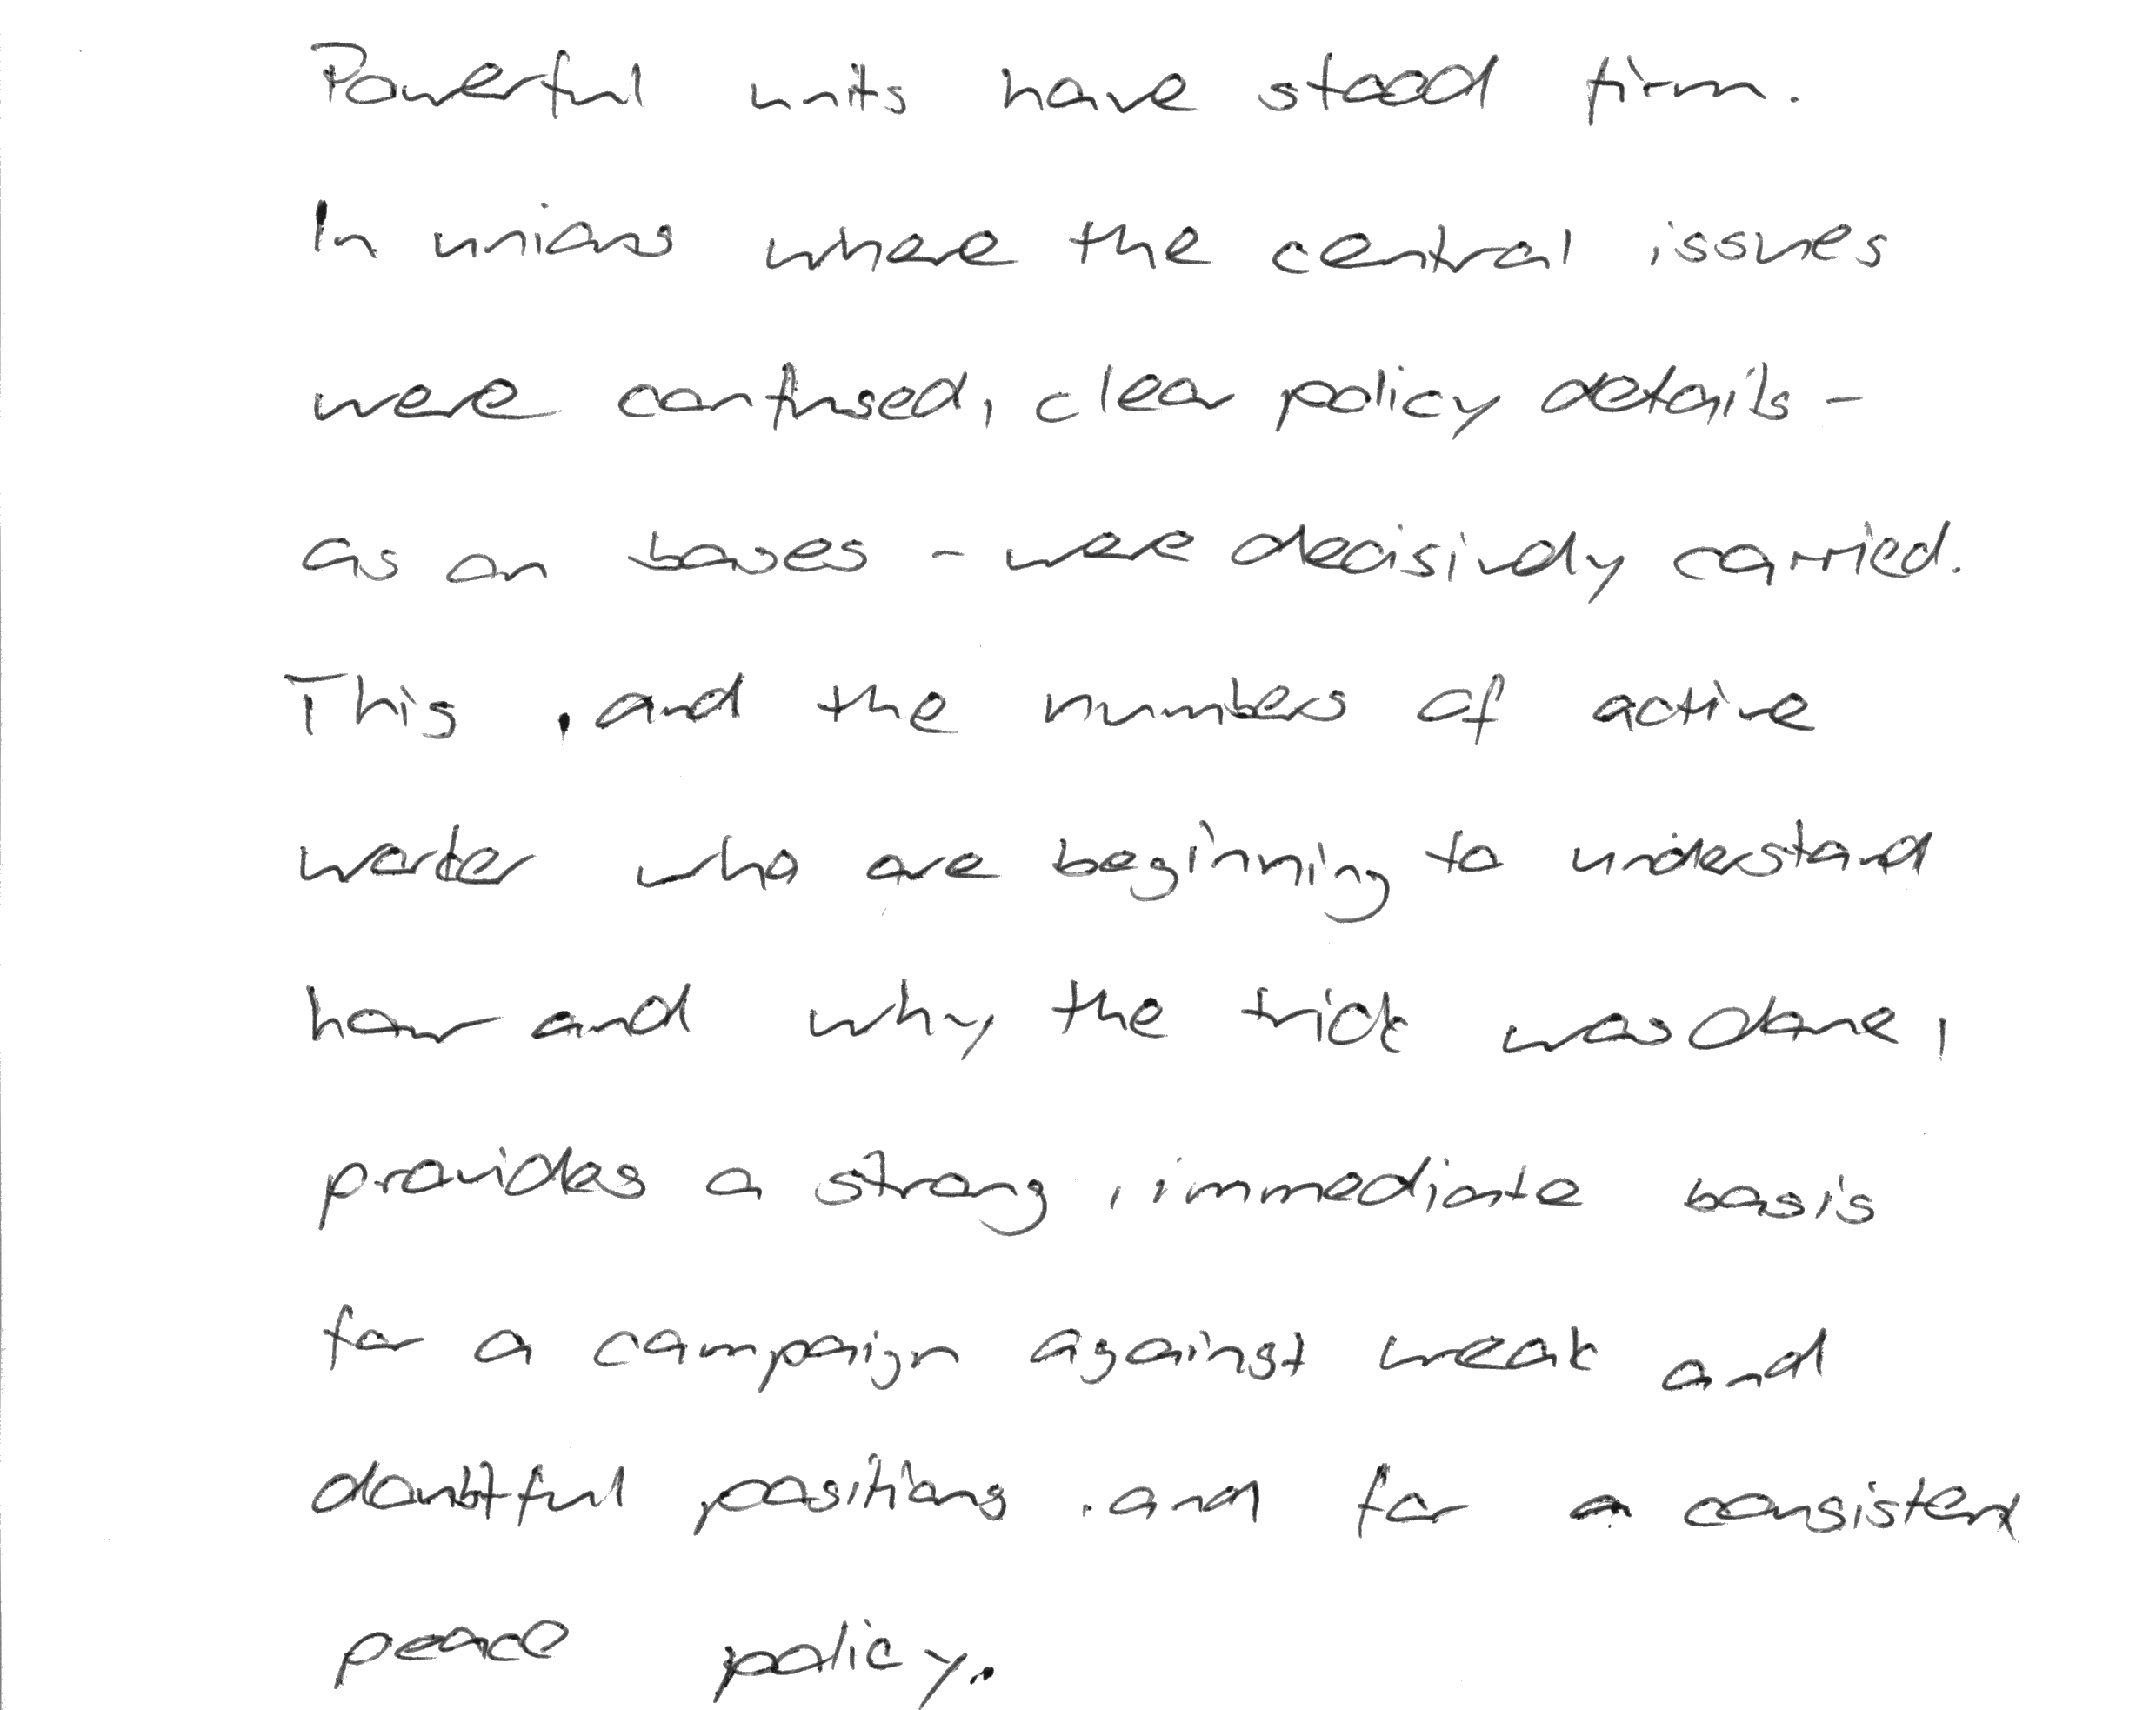 Powerful units have stood firm.
In unions where the central issues
were confused, clear policy details -
as on bases - were decisively carried.
This, and the numbers of active
worker who are beginning to understand
how and why the trick was done,
provides a strong, immediate basis
for a campaign against weak and
doubtful positions, and for a consistent
peace policy.